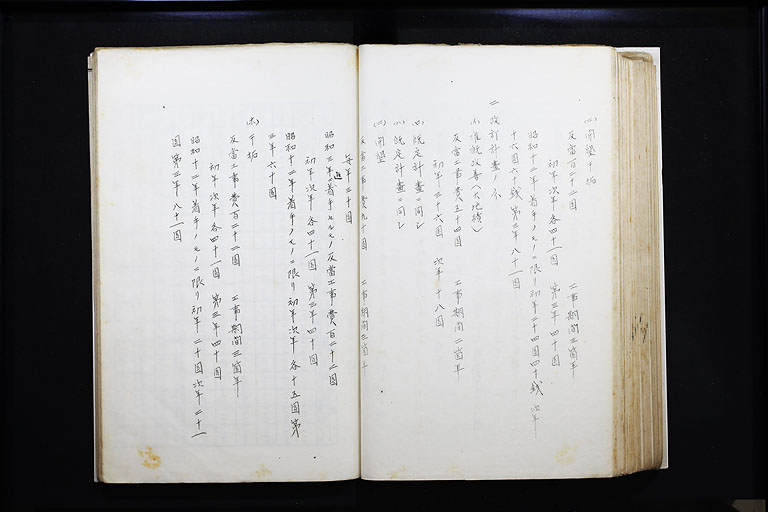 (二)開墾干拓
反當百二十一圓 工事期間三箇年
初年次年各四十一圓 第三年四十圓
昭和十二年着手ノモノニ限リ初年二十四圓四十錢 次年
十六圓六十錢 第三年八十一圓
二 改訂計畫ノ分
(イ)灌漑改善(各地積)
反當工事費五十四圓 工事期間二箇年
初年三十六圓 次年十八圓
(ロ)既定計畫ニ同シ
(ハ)既定計畫ニ同シ
(ニ)開墾
反當工事費九十圓 工事期間三箇年
毎年三十圓
昭和 年迄着手セルモノ反當工事費百二十二圓
初年次年各四十一圓 第三年四十圓
昭和十二年着手ノモノニ限リ初年次年各十五圓第
三年六十圓
(ホ)干拓
反當工事費百二十二圓 工事期間三箇年
初年次年各四十一圓 第三年四十圓
昭和十二年着手ノモノニ限リ初年二十圓次年二十一
圓第三年八十一圓